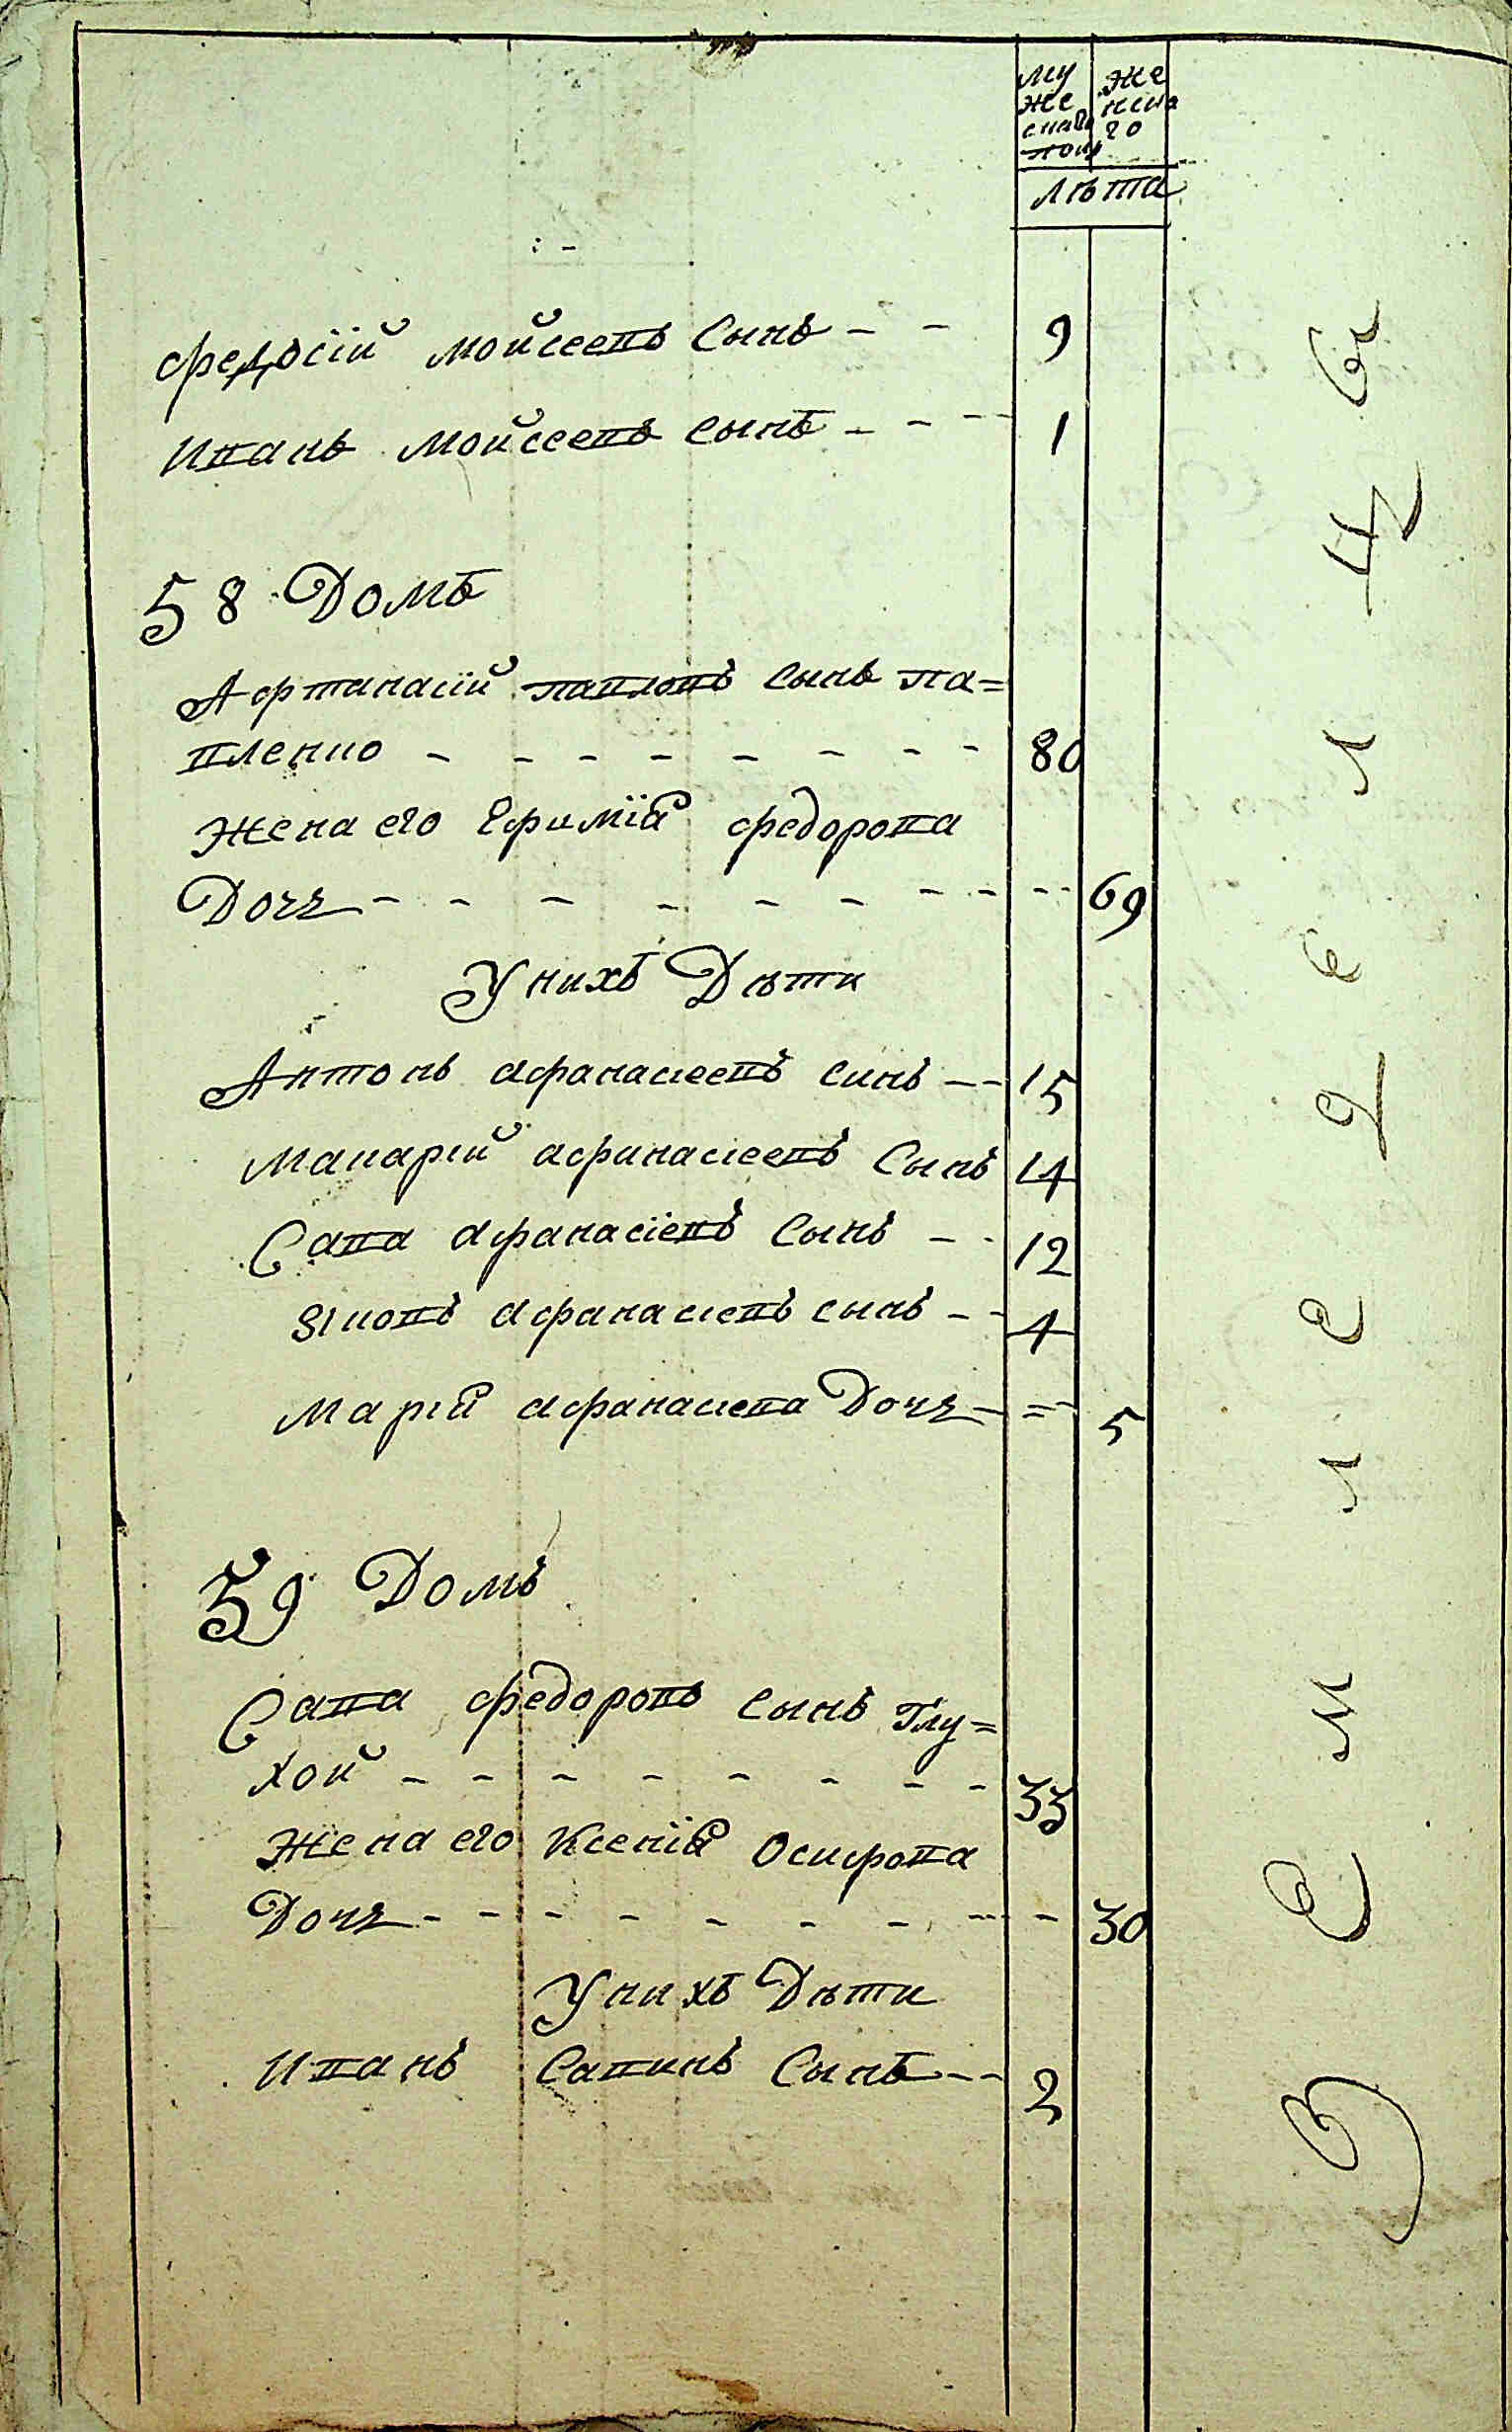 му
же
скаго
полу
же
нска
го
лѣта
Федосїй Мойсеевъ сынъ - - 9
Иванъ Мойсеевъ сынъ - - - 1
58 Домъ
Афтанасїй павловъ сынъ па=
вленко - - - - - - - - 80
Жена его Ефимїя федорова
Дочь - - - - - - - - - - 69
У нихъ Дѣти
Антонъ афанасиевъ синъ - - 15
Макарій афанасиевъ Сынъ 14
Сава афанасїевъ Сынъ - - 12
Яковъ афанасиевъ сынъ - - 4
Марія афанасиева Дочь - = - 5
59 Домъ
Сава федоровъ сынъ Глу=
хой - - - - - - - - 33
Жена его Ксенїя Осифова
Дочь - - - - - - - - - 30
У нихъ Дѣти
Иванъ Савинъ Сынъ - - 2
Земледелцы